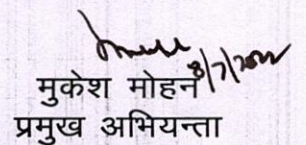 8/7/2022
मुकेश मोहन
प्रमुख अभियन्ता